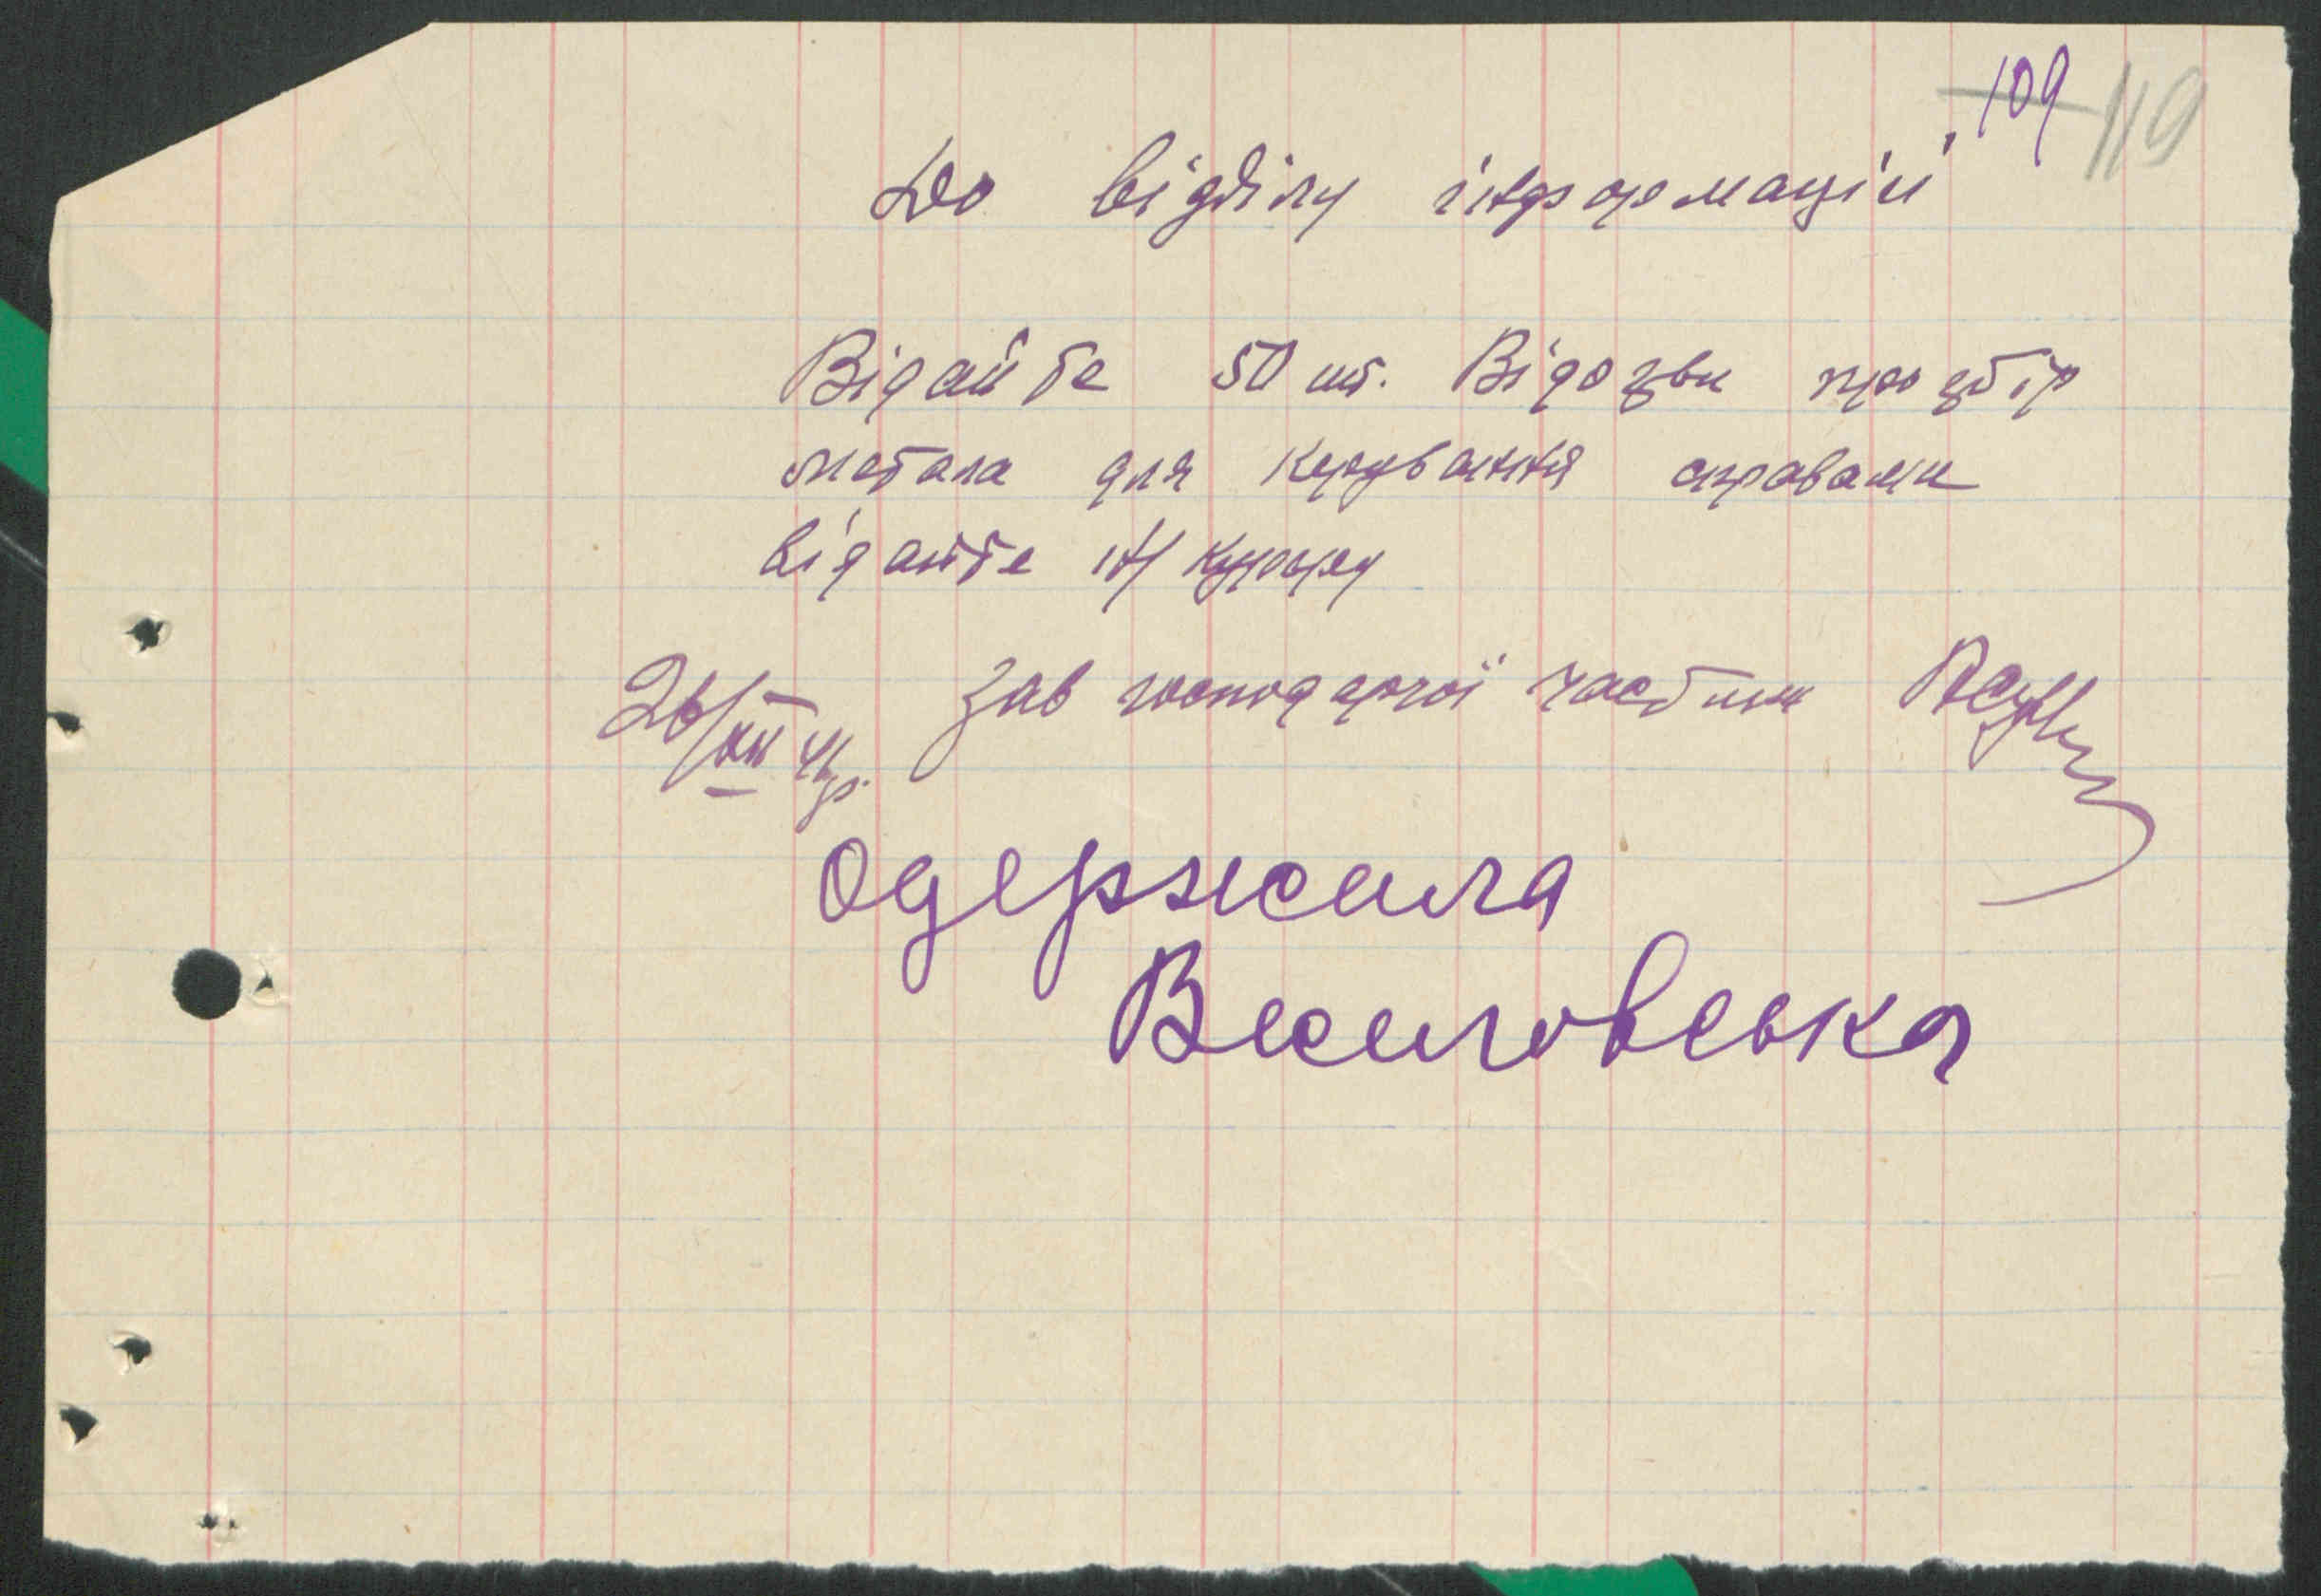 109 119
До відділу інформаціи
Відайте 50 шт. Відозви про збір
метала для керування справами
відайте н/ курьеру
26/XII 41р. Зав господарчої частини
Одержала
Висиловська